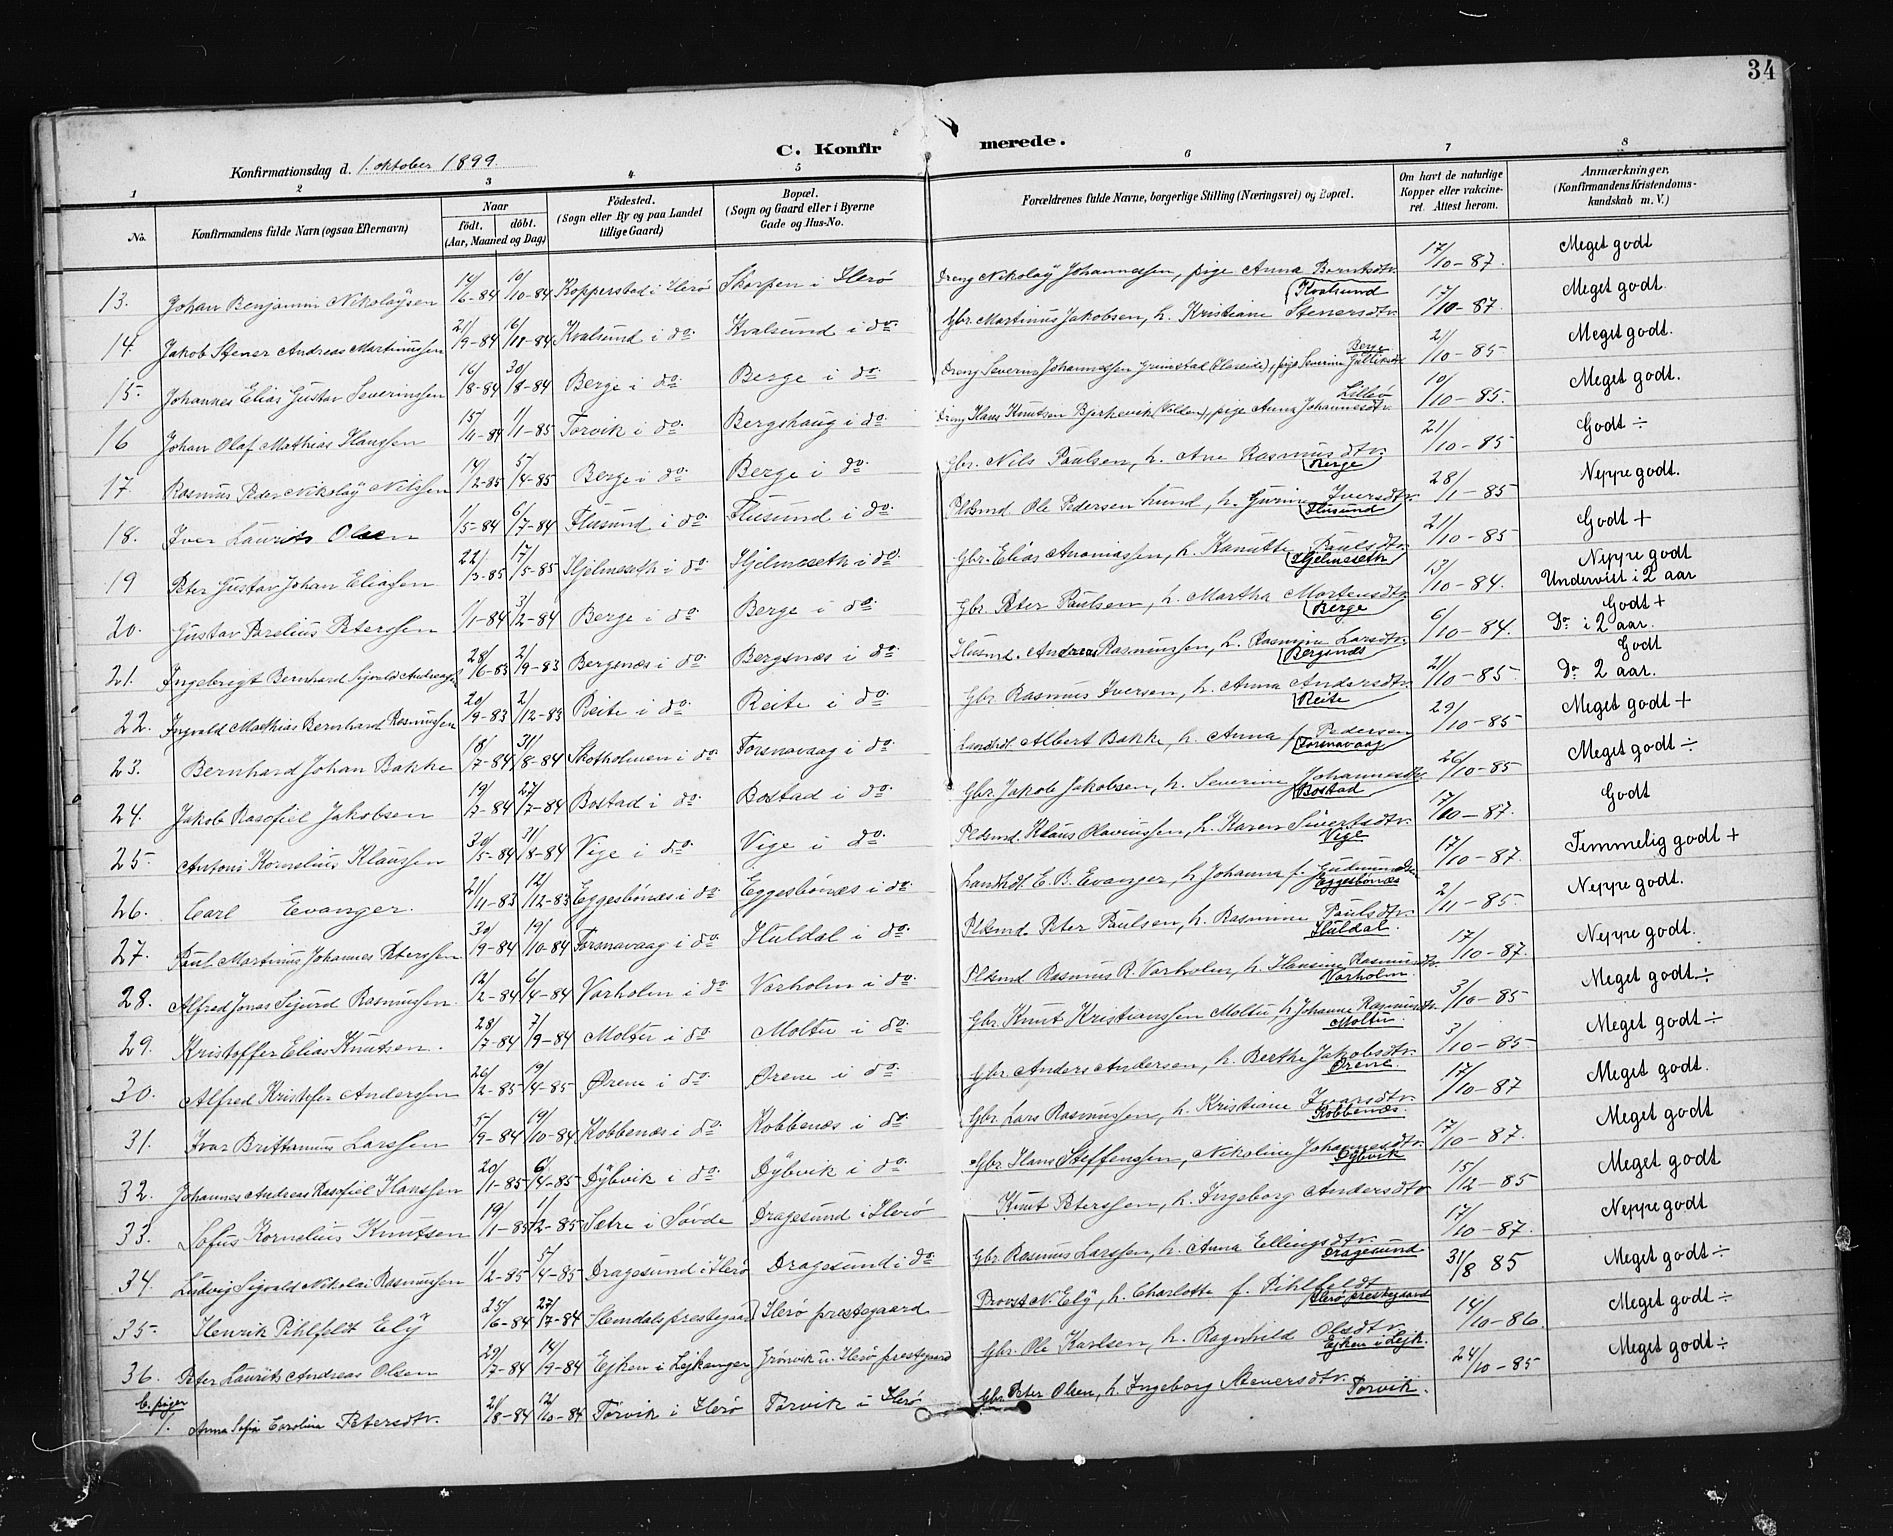 34
C. Konfirmerede.
Konfirmationsdag d. 1. oktober 1899.
1 2 3 4 5 6 7 8
No. Konfirmandens fulde Navn (ogsaa Efternavn) Naar født. døbt. (Aar, Maaned og Dag) Fødested. (Sogn eller By og paa Landet tillige Gaard) Bopæl. (Sogn og Gaard eller i Byerne Gade og Hus-No. Forældrenes fulde Navne, borgerlige Stilling (Næringsvei) og Bopæl. Om havt de naturlige Kopper eller vakcineret. Attest herom. Anmærkninger, (Konfirmandens Kristendomskundskab m. V.)
13. Johan Benjamin Nikolaysen 14/6-84 19/10-84 Kopperstad i Herø Skorpen i Herø Dreng Nikolaÿ Johannessen, pige Anna Berntsdtr. Kvalsund 17/10-87. Meget godt
14. Jakob Stener Andreas Martinussen 21/9-84 16/11-84 Kvalsund i do. Kvalsund i do. Gbr. Martinus Jakobsen, h. Kristiane Stenersdtr. 17/10-87. Meget godt.
15. Johannes Elias Gustav Severinssen 16/8-84 30/8-84 Berge i do. Berge i do. Dreng Severin Johannessen Grimstad (Hareide), pige Severine Gulliksdtr Berge 2/10-85 Meget godt.
16 Johan Olaf Mathias Hanssen 15/11-84 1/1-85 Torvik i do. Bergshaug i do. Dreng Hans Knutsen Bjerkevik (Volden), pige Anna Johannesdtr. Lillø 10/10-85. Meget godt.
17. Rasmus Peder Nikolaÿ Nilssen 14/2-85 5/4-85 Berge i do. Berge i do. Gbr. Nils Paulsen, h. Ane Rasmusdtr. Berge 21/10-85 Godt ÷
18. Iver Laurits Olsen 1/5-84 6/7-84 Flusund i do. Flusund i do. Pldsmd Ole Pedersen Lund, h. Gurine Iversdtr. Flusund 28/1-85 Neppe godt.
19 Peter Gustav Johan Eliassen 22/3-85 17/5-85 Hjelmeseth i do. Hjelmeseth i do. Gbr. Elias Ananiassen, h. Kanutte Paulsdtr. Hjelmeseth 21/10-85 Godt +
20. Gustav Parelius Peterssen 1/1-84 3/2-84 Berge i do. Berge i do. Gbr. Peter Paulsen, h. Martha Mortensdtr. Berge 13/10-84. Neppe godt Undervist i 2 aar
21. Ingebrigt Bernhard Sigvald Andreassen 28/6-83 2/9-83 Bergsnæs i do. Bergsnæs i do. Husmd. Andreas Rasmussen, h. Rasmine Larsdtr. Bergsnæs 6/10-84. Godt + Do. i 2 aar.
22. Ingvald Mathias Bernhard Rasmussen 20/9-83 2/12-83 Reite i do. Reite i do. Gbr. Rasmus Iversen, h. Anna Andersdtr. Reite 21/10-85 Godt Do. 2 aar.
23. Bernhard Johan Bakke 18/7-84 31/8-84 Skotholmen i do. Fosnavaag i do. Landhdl. Albert Bakke, h. Anna f. Pedersen Fosnavaag 29/10-85 Meget godt +
24. Jakob Rasofiel Jakobsen 19/2-84 27/7-84 Bostad i do. Bostad i do. Gbr. Jakob Jakobsen, h. Severine Johannesdtr. Bostad 26/10-85 Meget godt ÷
25. Antoni Kornelius Klaussen 30/5-84 31/8-84 Vige i do. Vige i do. Pldsmd. Klaus Olavnussen, h. Karen Sivertsdtr. Vige 17/10-87. Godt
26. Carl Evanger. 21/11-83 12/12-83 Eggesbønæs i do. Eggesbønæs i do. Landhdl. E. B. Evanger, h. Johanna f. Gudmundsen Eggesbønæs 17/10-87. Temmelig godt +
27. Paul Martinus Johannes Peterssen 30/9-84 19/10-84 Fosnavaag i do. Huldal i do. Pldsmd. Peter Paulsen, h. Rasmine Paulsdtr. Huldal. 2/11-85. Neppe godt.
28. Alfred Jonas Sigurd Rasmussen. 12/2-84 6/4-84 Vorholm i do. Vorholm i do. Pldsmd Rasmus R. Vorholm, h. Hansine Rasmusdtr. Vorholm 17/10-87. Neppe godt.
29. Kristoffer Elias Knutsen. 28/7-84 7/9-84 Moltu i do. Moltu i do. Gbr. Knut Kristianssen Moltu h. Johanne Rasmusdtr. Moltu. 3/10-85 Meget godt ÷
30. Alfred Kristofer Anderssen 26/2-85 19/4-85 Ørene i do. Ørene i do. Gbr. Anders Andersen, h. Berthe Jakobsdtr. Ørene 3/10-85. Meget godt ÷
31. Ivar Brittanius Larssen 5/9-84 19/10-84 Kobbenæs i do. Kobbenæs i do. Gbr. Lars Rasmussen, h. Kristiane Ivarsdtr. Kobbenæs. 17/10-87 Meget godt.
32. Johannes Andreas Rasofiel Hanssen 20/1-85 6/4-85 Dÿbvik i do. Dÿbvik i do. Gbr. Hans Steffenssen, Nikoline Johannesdtr. Dÿbvik 17/10-87. Meget godt
33. Sofus Kornelius Knutsen 19/1-85 1/2-85 Sætre i Søvde Dragesund i Herø Knut Peterssen, h. Ingeborg Andersdtr. 15/12-85 Meget godt
34. Ludvig Sigvald Nikolai Rasmussen 1/2-85 5/4-85 Dragesund i Herø Dragesund i do. Gbr. Rasmus Larssen, h. Anna Ellingsdtr. Dragesund 17/10-87. Neppe godt
35. Henrik Pihlfeldt Elÿ 25/6-84 27/7-84 Slemdals prestegaard Herø prestegaard Provst N. Elÿ, h. Charlotte f. Pihlfeldt Herø prestegaard 31/8 85 Meget godt ÷
36. Peter Laurits Andreas Olsen 29/7-84 14/9-84 Ejken i Lejkanger Grønvik u. Herø prestegaard Gbr. Ole Karlsen, h. Ragnhild Olsdtr. Ejken i Lejk. 14/10-86. Meget godt ÷
b. piger
1. Anna Sofia Carolina Petersdtr. 21/8-84 12/10-84 Torvik i Herø Torvik i Herø Gbr. Peter Olsen, h. Ingeborg Stenersdtr. Torvik. 24/10-85 Meget godt ÷